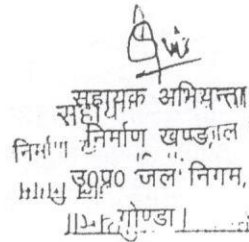 सहायक अभियन्ता
निर्माण खण्ड,
उ०प्र० जल निगम,
गोण्डा।